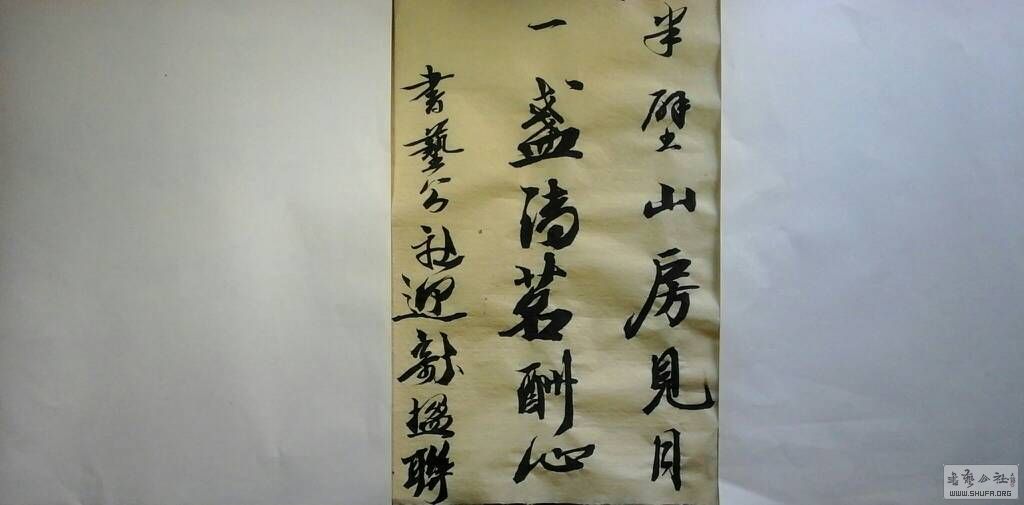 半壁山房見月
一盞清茗酬心
書藝公社迎楹聯
書藝公社
WWW.SHUFA.ORG